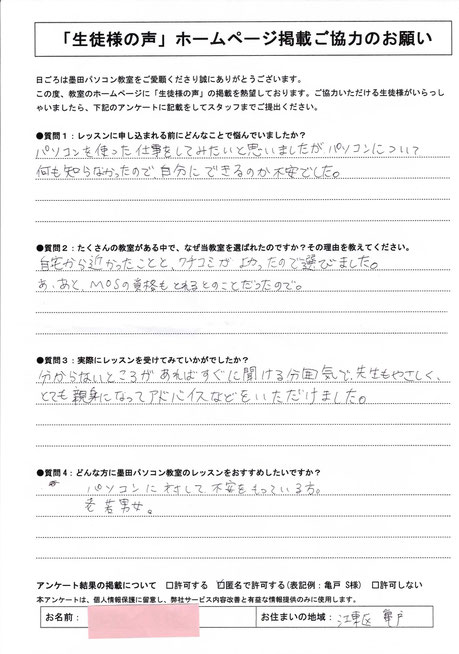 「生徒様の声」ホームページ掲載ご協力のお願い
日ごろは墨田パソコン教室をご愛顧くださり誠にありがとうございます。
この度、教室のホームページに「生徒様の声」の掲載を熱望しております。ご協力いただける生徒様がいらっし
ゃいましたら、下記のアンケートに記載をしてスタッフまでご提出ください。
●質問1：レッスンに申し込まれる前にどんなことで悩んでいましたか？
パソコンを使った仕事をしてみたいと思いましたがパソコンについて
何も知らなかったので自分にできるのか不安でした。
●質問2：たくさんの教室がある中で、なぜ当教室を選ばれたのですか？その理由を教えてください。
自宅から近かったことと、クチコミがよかったので選びました。
あ、あと、MOSの資格もとれるとのことだったので。
●質問3：実際にレッスンを受けてみていかがでしたか？
分からないところがあればすぐに聞ける分囲気で、先生もやさしく、
とても親身になってアドバイスなどをいただけました。
●質問4：どんな方に墨田パソコン教室のレッスンをおすすめしたいですか？
パソコンに対して不安をもっている方。
老若男女。
アンケート結果の掲載について □許可する ☑匿名で許可する(表記例：亀戸 S様) □許可しない
本アンケートは、個人情報保護に留意し、弊社サービス内容改善と有益な情報提供のみに使用します。
お名前： お住まいの地域： 江東区 亀戸